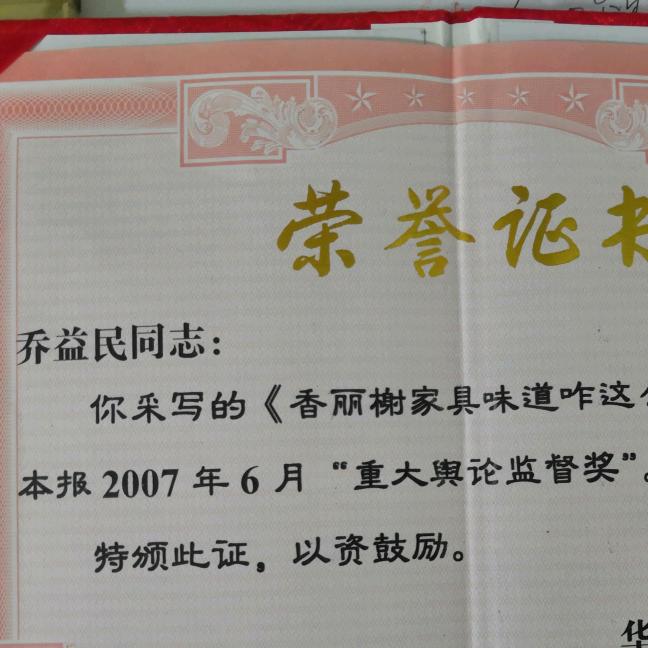 荣誉证书
乔益民同志：
你采写的《香丽榭家具味道咋这
本报2007年6月“重大舆论监督奖”。
特颁此证，以资鼓励。
华